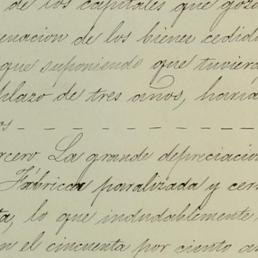 de los capitales que goza
enacion de los bienes cedid
que suponiendo que tuviera
plazo de tres años, haria
os
rcero La grande depreciacion
Fábrica paralizada y cerr
ta, lo que indudablemente,
n el cincuenta por ciento a